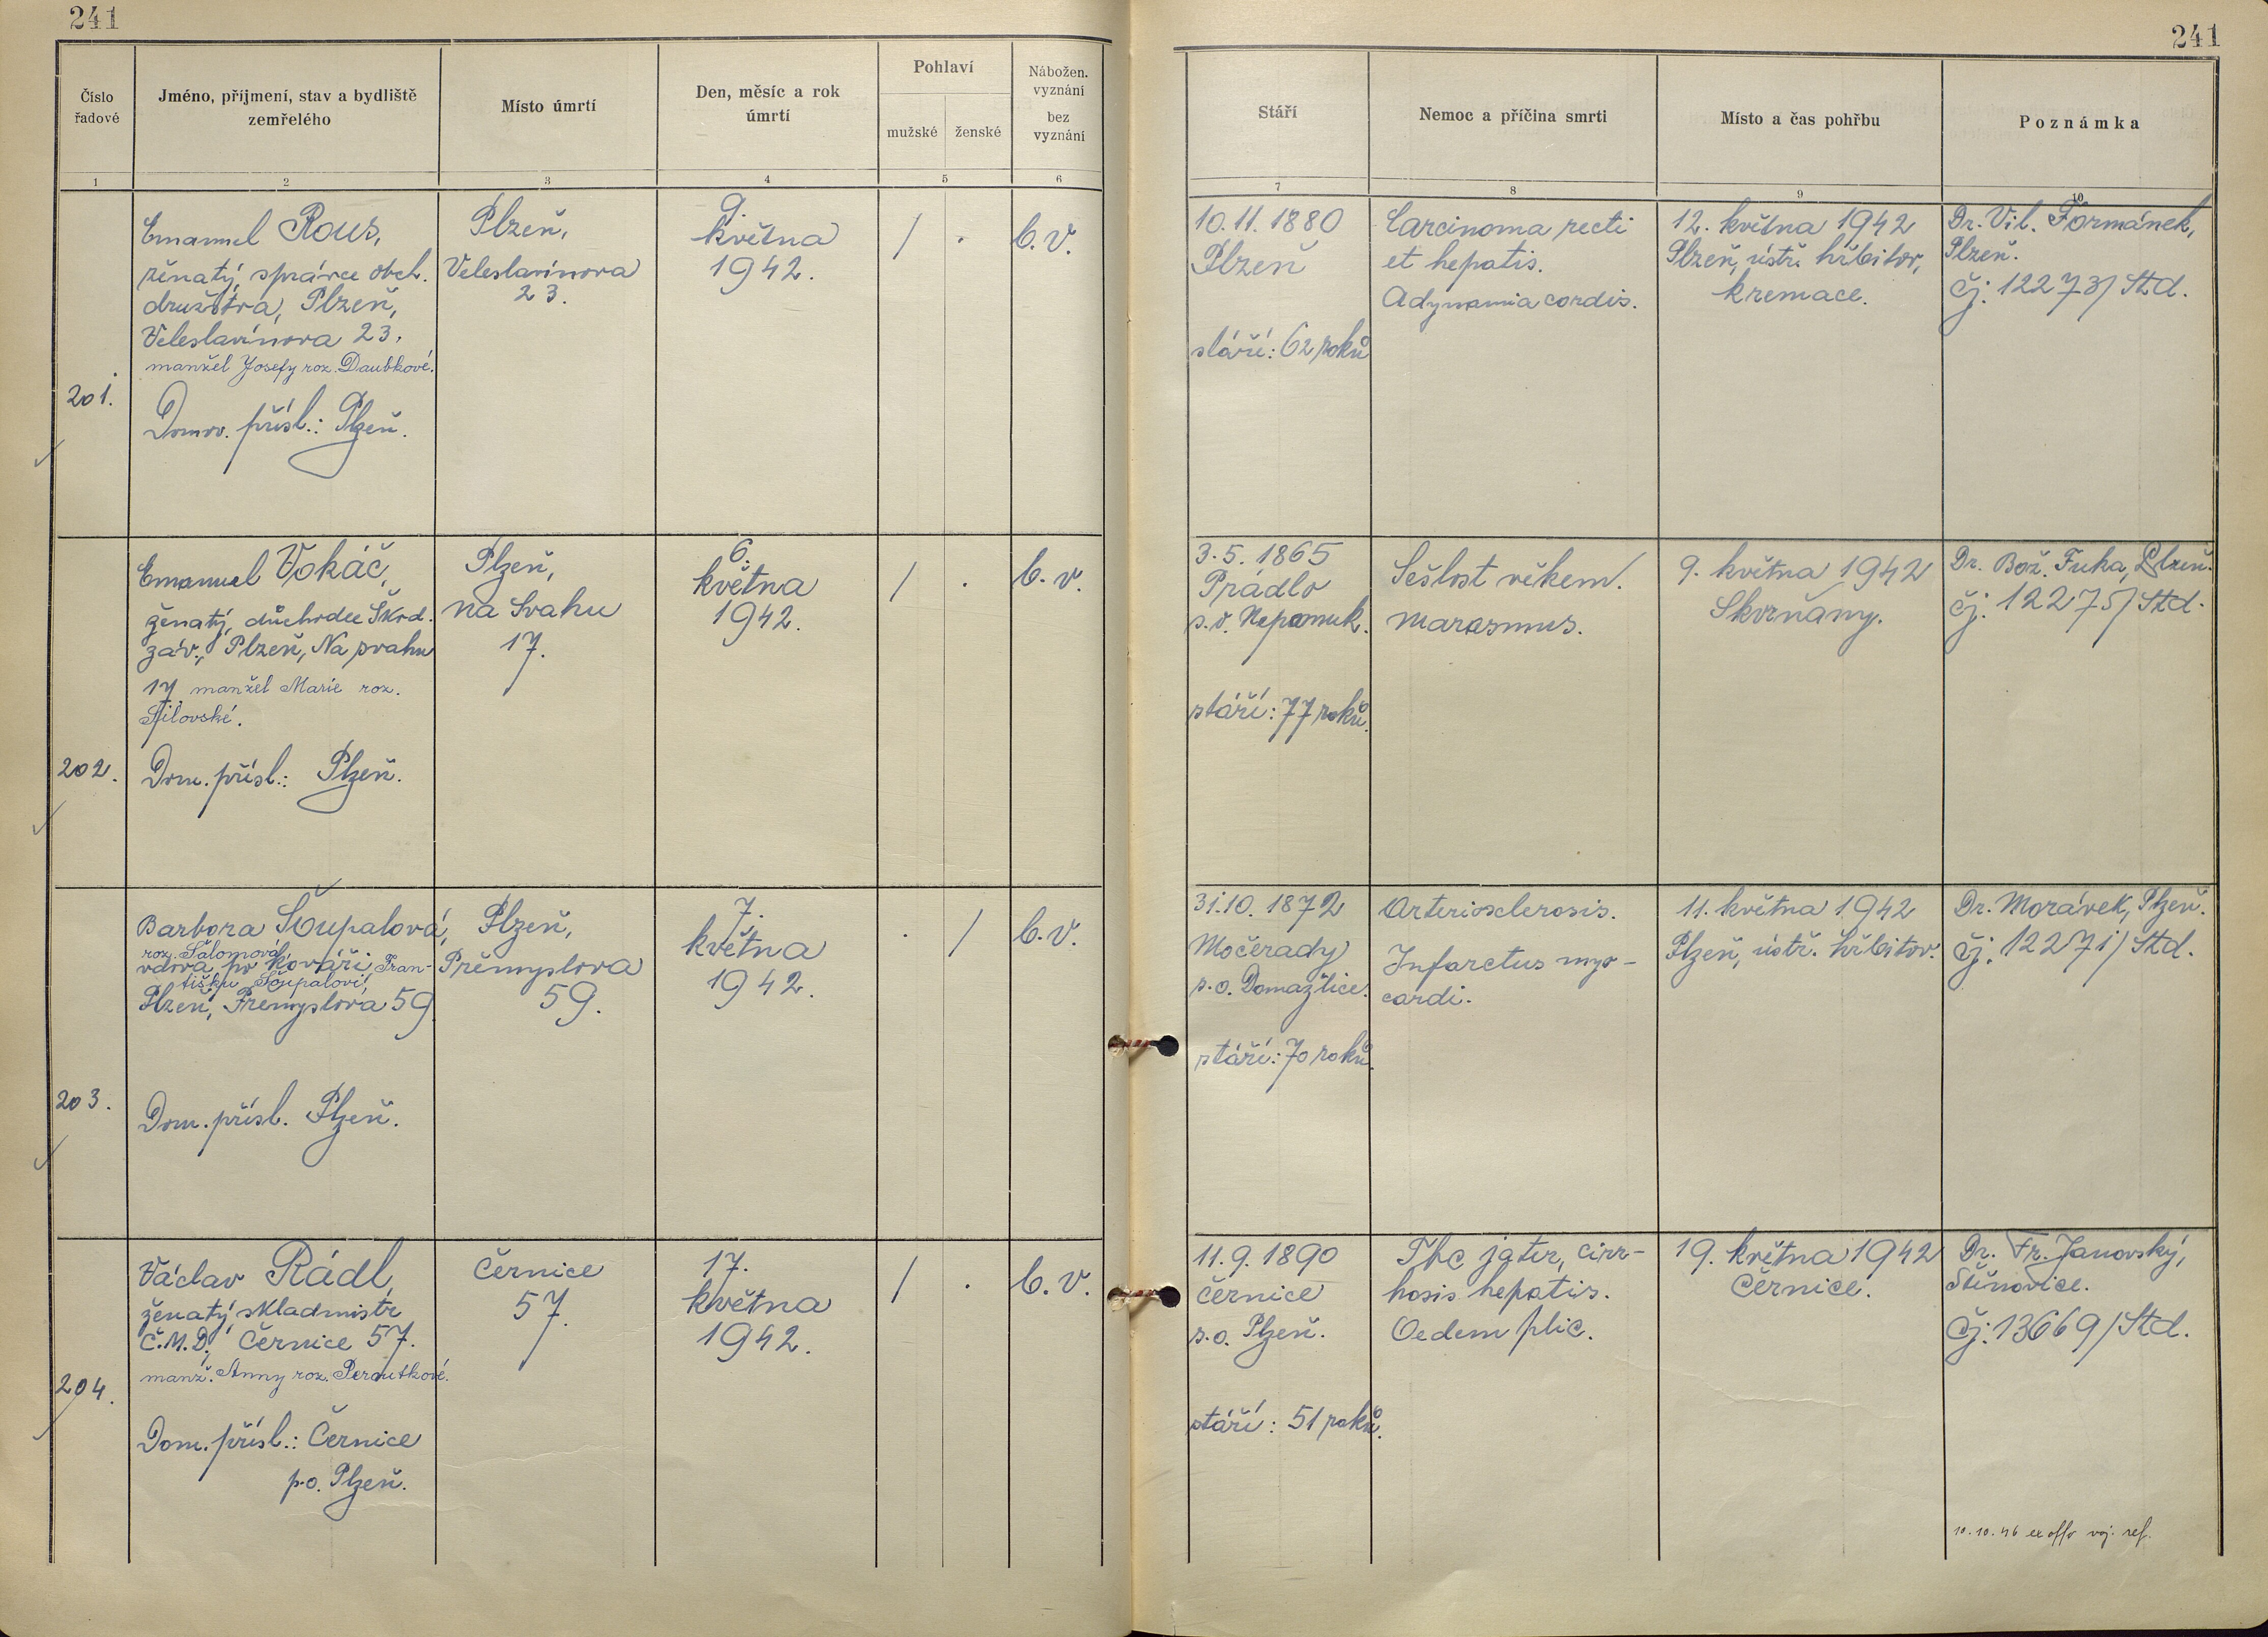 241
241
Číslo řadové
Jméno, příjmení, stav a bydliště zemřelého
Místo úmrtí
Den, měsíc a rok úmrtí
Pohlaví
mužské
ženské
Nábožen. vyznání
bez vyznání
Stáří
Nemoc a příčina smrti
Místo a čas pohřbu
Poznámka
1
2
3
4
5
6
7
8
9
10
201.
Emanuel Rous,
ženatý, správce obch.
družstva, Plzeň,
Veleslavínova 23.
manžel Josefy roz. Daubkové.
Domov. přísl.: Plzeň.
Plzeň,
Veleslavínova
23.
9.
května
1942.
/ .
b.v.
10.11.1880
Plzeň
stáří: 62 roků
Carcinoma recti
et hepatis.
Adynamia cordis.
12. května 1942
Plzeň, ústř. hřbitov,
kremace.
Dr. Vil. Formánek,
Plzeň.
čj. 12273/Std.
202.
Emanuel Vokáč,
ženatý, důchodce Škod.
záv., Plzeň, Na svahu
17 manžel Marie roz.
Šilovské.
Dom. přísl.: Plzeň.
Plzeň,
na Svahu
17.
6.
května
1942.
/ .
b.v.
3.5.1865
Prádlo
s.o. Nepomuk.
stáří: 77 roků.
Sešlost věkem/.
marasmus.
9. května 1942
Skvrňany.
Dr. Bož. Fuka, Plzeň.
čj. 12275/Std.
203.
Barbora Šoupalová,
roz. Šalomová,
vdova po kováři Fran-
tišku Šoupalovi,
Plzeň, Přemyslova 59.
Dom. přísl. Plzeň.
Plzeň,
Přemyslova
59.
7.
května
1942.
. /
b.v.
31.10.1872
Močerady
s.o. Domažlice.
stáří: 70 roků.
Arteriosclerosis.
Infarctus myo-
cardi.
11. května 1942
Plzeň, ústř. hřbitov.
Dr. Morávek, Plzeň.
čj. 12271/Std.
204.
Václav Rádl,
ženatý, skladmistr
Č.M.D., Černice 57.
manž. Anny roz. Peroutkové.
Dom. přísl.: Černice
p.o. Plzeň.
Černice
57.
17.
května
1942.
/ .
b.v.
11.9.1890
Černice
s.o. Plzeň.
stáří: 51 roků.
Tbc jater, cirr-
hosis hepatis.
Oedem plic.
19. května 1942
Černice.
Dr. Fr. Janovský,
Štěnovice.
čj. 13669/Std.
10.10.46 ex offo voj. ref.